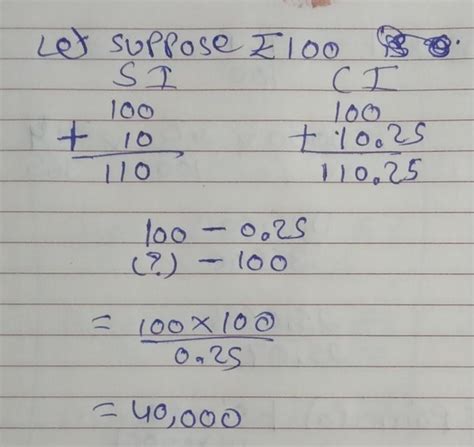 Let suppose ₹100
SI CI
100 100
+ 10 + 10.25
110 110.25
100 - 0.25
(?) - 100
= 100×100
0.25
= 40,000